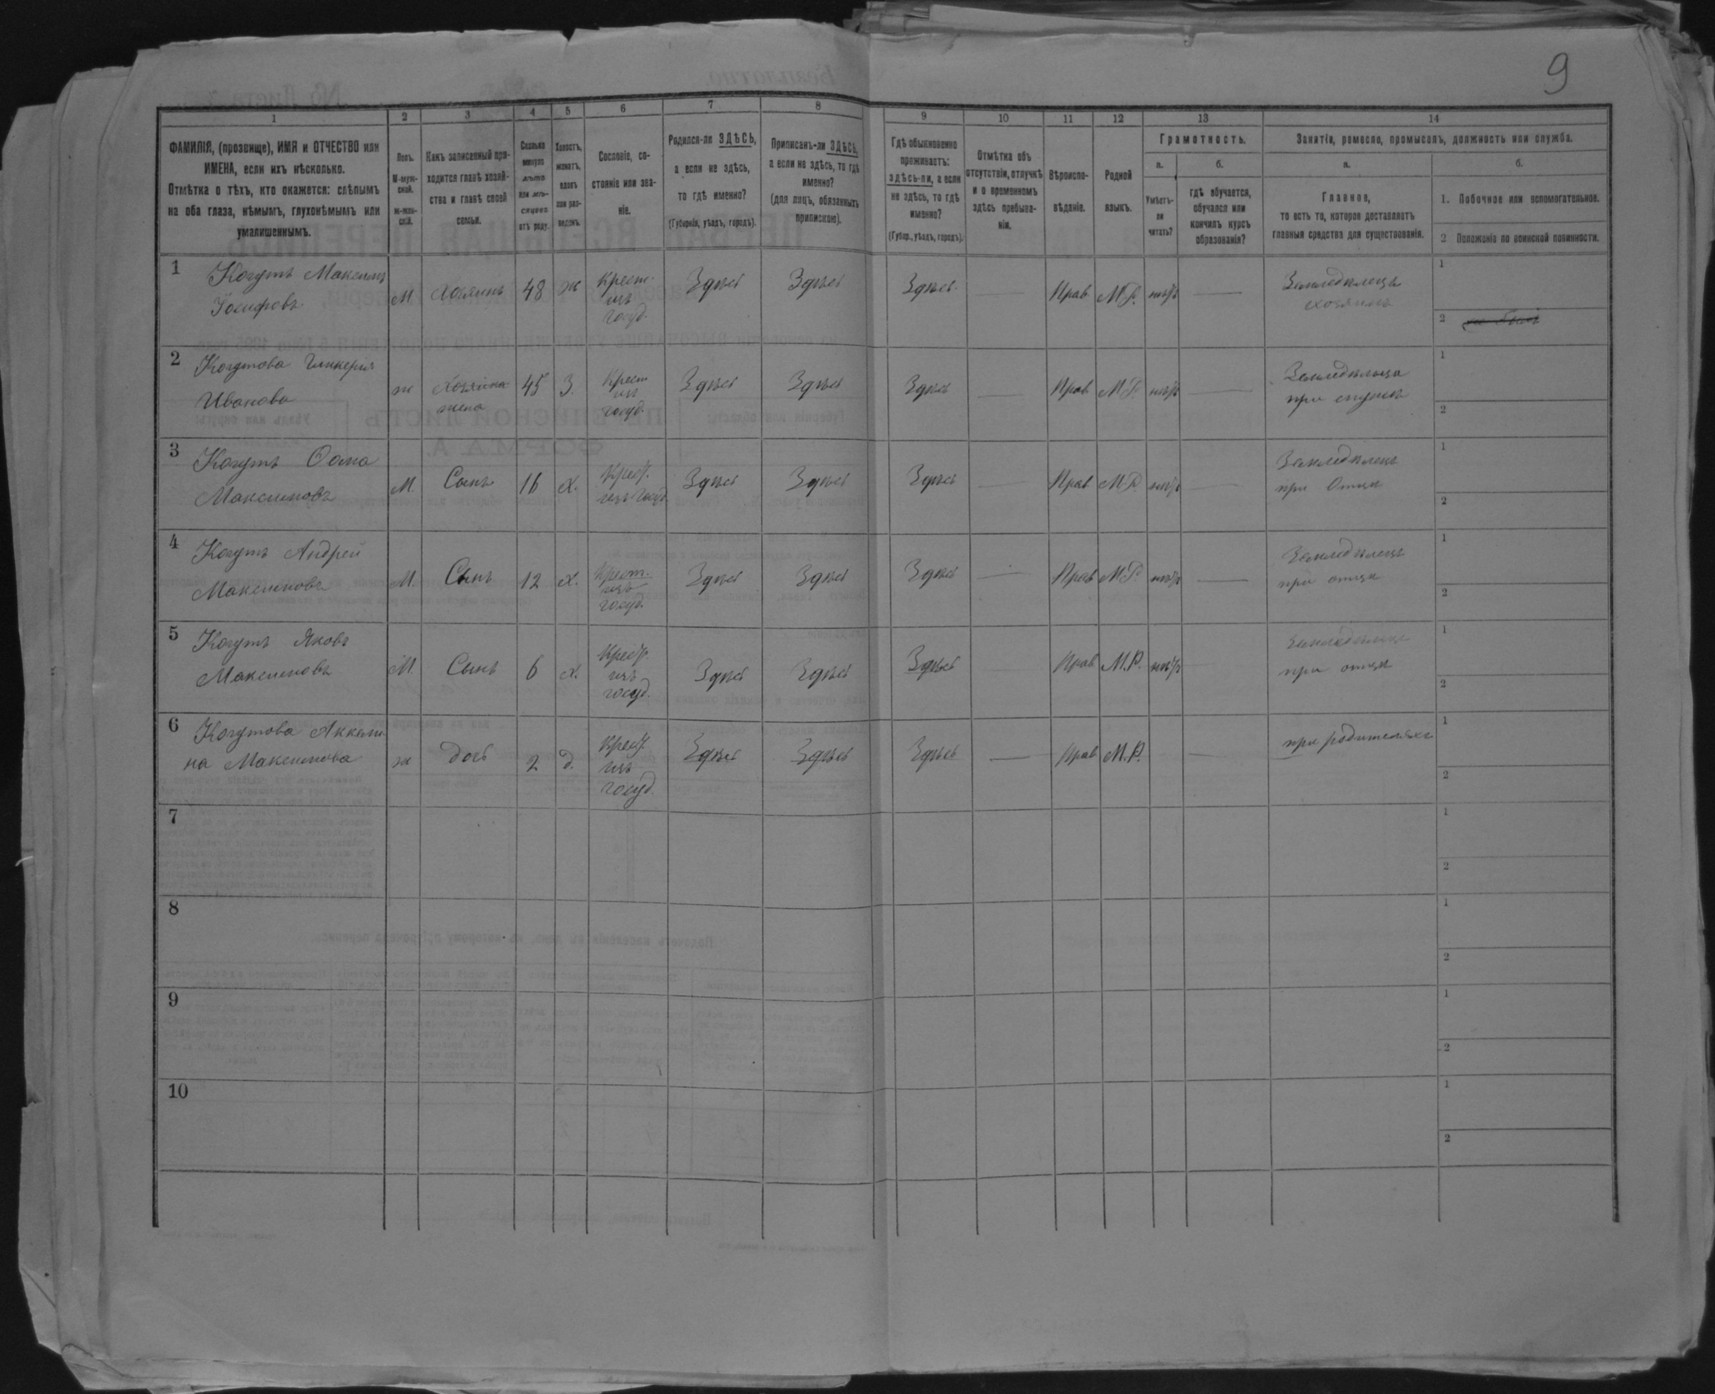 9
1 2 3 4 5 6 7 8 9 10 11 12 13 14
ФАМИЛІЯ, (прозвище), ИМЯ и ОТЧЕСТВО или
ИМЕНА, если ихъ нѣсколько.
Отмѣтка о тѣхъ, кто окажется: слѣпымъ
на оба глаза, нѣмымъ, глухонѣмымъ или
умалишеннымъ.
Полъ.
М-муж-
ской.
ж-жен-
скій.
Какъ записанный при-
ходится главѣ хозяй-
ства и главѣ своей
семьи.
Сколько
минуло
лѣтъ
или мѣ-
сяцевъ
отъ роду.
Холостъ,
женатъ,
вдовъ
или раз-
веденъ.
Сословіе, со-
стояніе или зва-
ніе.
Родился-ли ЗДѢСЬ,
а если не здѣсь,
то гдѣ именно?
(Губернія, уѣздъ, городъ).
Приписанъ-ли ЗДѢСЬ,
а если не здѣсь, то гдѣ
именно?
(для лицъ, обязанныхъ
припискою).
Гдѣ обыкновенно
проживаетъ:
здѣсь-ли, а если
не здѣсь, то гдѣ
именно?
(Губер., уѣздъ, городъ).
Отмѣтка объ
отсутствіи, отлучкѣ
и о временномъ
здѣсь пребыва-
ніи.
Вѣроиспо-
вѣданіе.
Родной
языкъ.
Грамотность.
а. б.
Умѣетъ-
ли
читать?
гдѣ обучается,
обучался или
кончилъ курсъ
образованія?
Занятіе, ремесло, промыселъ, должность или служба.
а. б.
Главное,
то есть то, которое доставляетъ
главныя средства для существованія.
1. Побочное или вспомогательное.
2 Положеніе по воинской повинности.
1 Когутъ Максимъ
Іосифовъ
М. Хозяинъ 48 ж
Крест.
изъ
госуд.
Здѣсь Здѣсь Здѣсь — Прав М.Р. нѣтъ —
Земледѣлецъ
хозяинъ
1
2
2 Когутова Гликерія
Иванова
ж
Хозяина
жена
45 З.
Крест
изъ
госуд.
Здѣсь Здѣсь Здѣсь — Прав М.Р. нѣтъ —
Земледѣлица
при мужѣ
1
2
3 Когутъ Ѳома
Максимовъ
М. Сынъ 16 х.
Крест.
изъ госуд.
Здѣсь Здѣсь Здѣсь — Прав М.Р. нѣтъ —
Земледѣлецъ
при Отцѣ
1
2
4 Когутъ Андрей
Максимовъ
М. Сынъ 12 х.
Крест.
изъ
госуд.
Здѣсь Здѣсь Здѣсь — Прав М.Р. нѣтъ —
Земледѣлецъ
при отцѣ
1
2
5 Когутъ Яковъ
Максимовъ
М. Сынъ 6 х
Крест.
изъ
госуд.
Здѣсь Здѣсь Здѣсь Прав М.Р. нѣтъ
при отцѣ
1
2
6 Когутова Аккили
на Максимова
ж Дочь 2 д.
Крест
изъ
госуд
Здѣсь Здѣсь Здѣсь — Прав М.Р. —
при родителяхъ
1
2
7
1
2
8
1
2
9
1
2
10
1
2